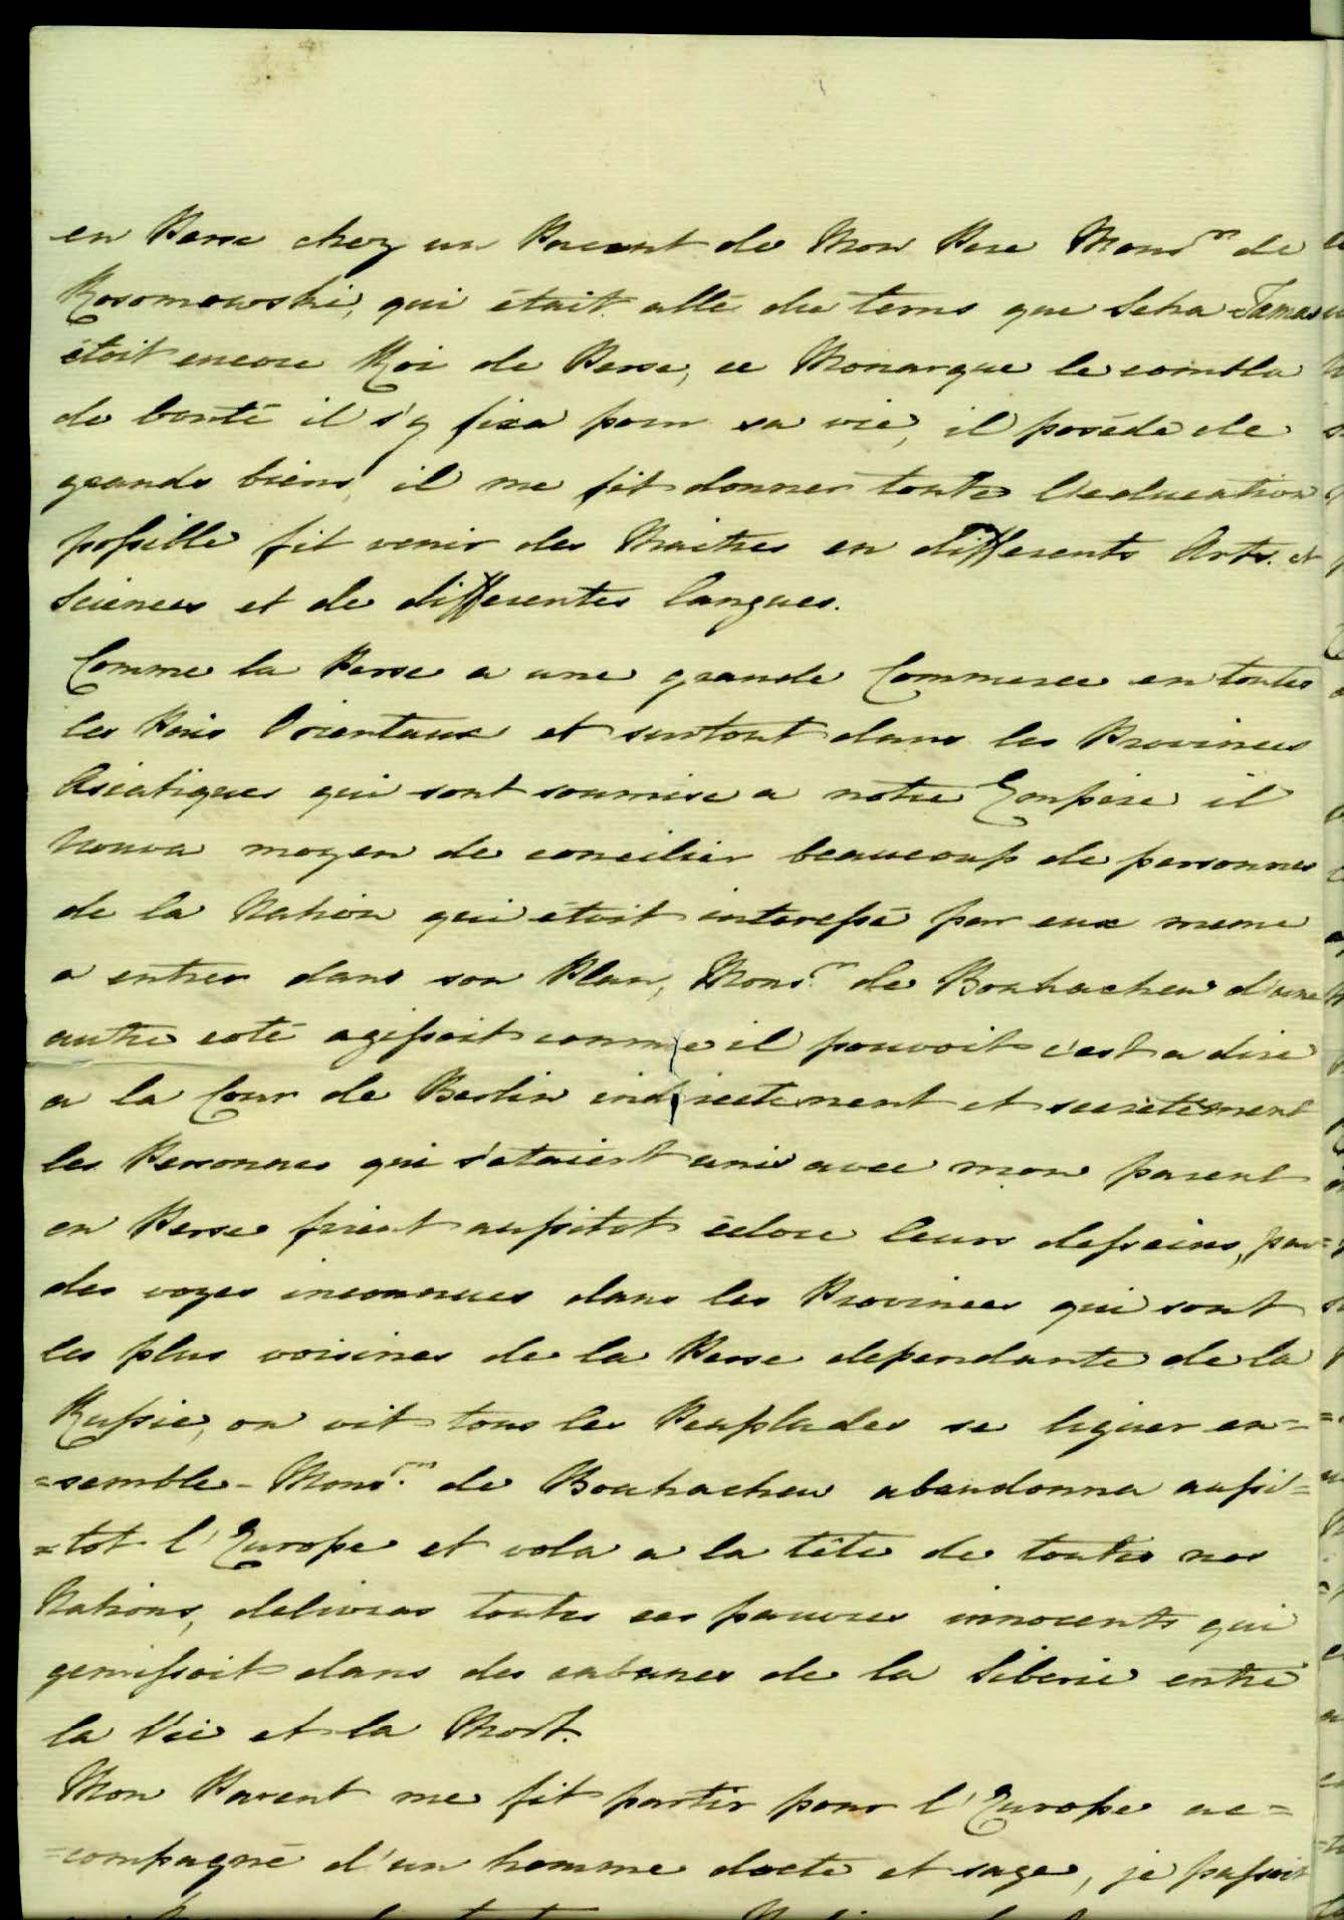 en Perse chez un Parent de Mon Pere Monsr de
Rosomowski, qui était allé du tems que Scha-Tamas
étoit encore Roi de Perse, ce Monarque le combla
de bonté il s'y fixa pour sa vie, il posède de
grands biens, il me fit donner toute l'education
possible fit venir des Maitres en differents Arts et
Sciences et de differentes langues.
Comme la Perse a une grande Commerce en toutes
les Païs Orientaux et surtout dans les Provinces
Asiatiques qui sont soumise a notre Empire il
trouva moyen de concilier beaucoup de personnes
de la Nation qui étoit interessé par eux meme
a entrer dans son Plan, Monsr de Bouhachew d'une
autre coté agissoit comme il pouvoit c'est a dire
a la Cour de Berlin indirectement et secretement
les Personnes qui s'etaient unis avec mon parent
en Perse firent aussitot éclore leurs desseins, par
des voyes inconnues dans les Provinces qui sont
les plus voisines de la Perse dependante de la
Russie, on vit tous les Peuplades se liguer en=
=semble - Monsr de Bouhachew abandonna aussi=
=tot l'Europe et vola a la tête de toutes nos
Nations, delivras toutes ces pauvres innocents qui
gemissoit dans des cabanes de la Siberie entre
la Vie et la Mort.
Mon Parent me fit partir pour l'Europe ac=
=compagné d'un homme docte et sage, je passoit